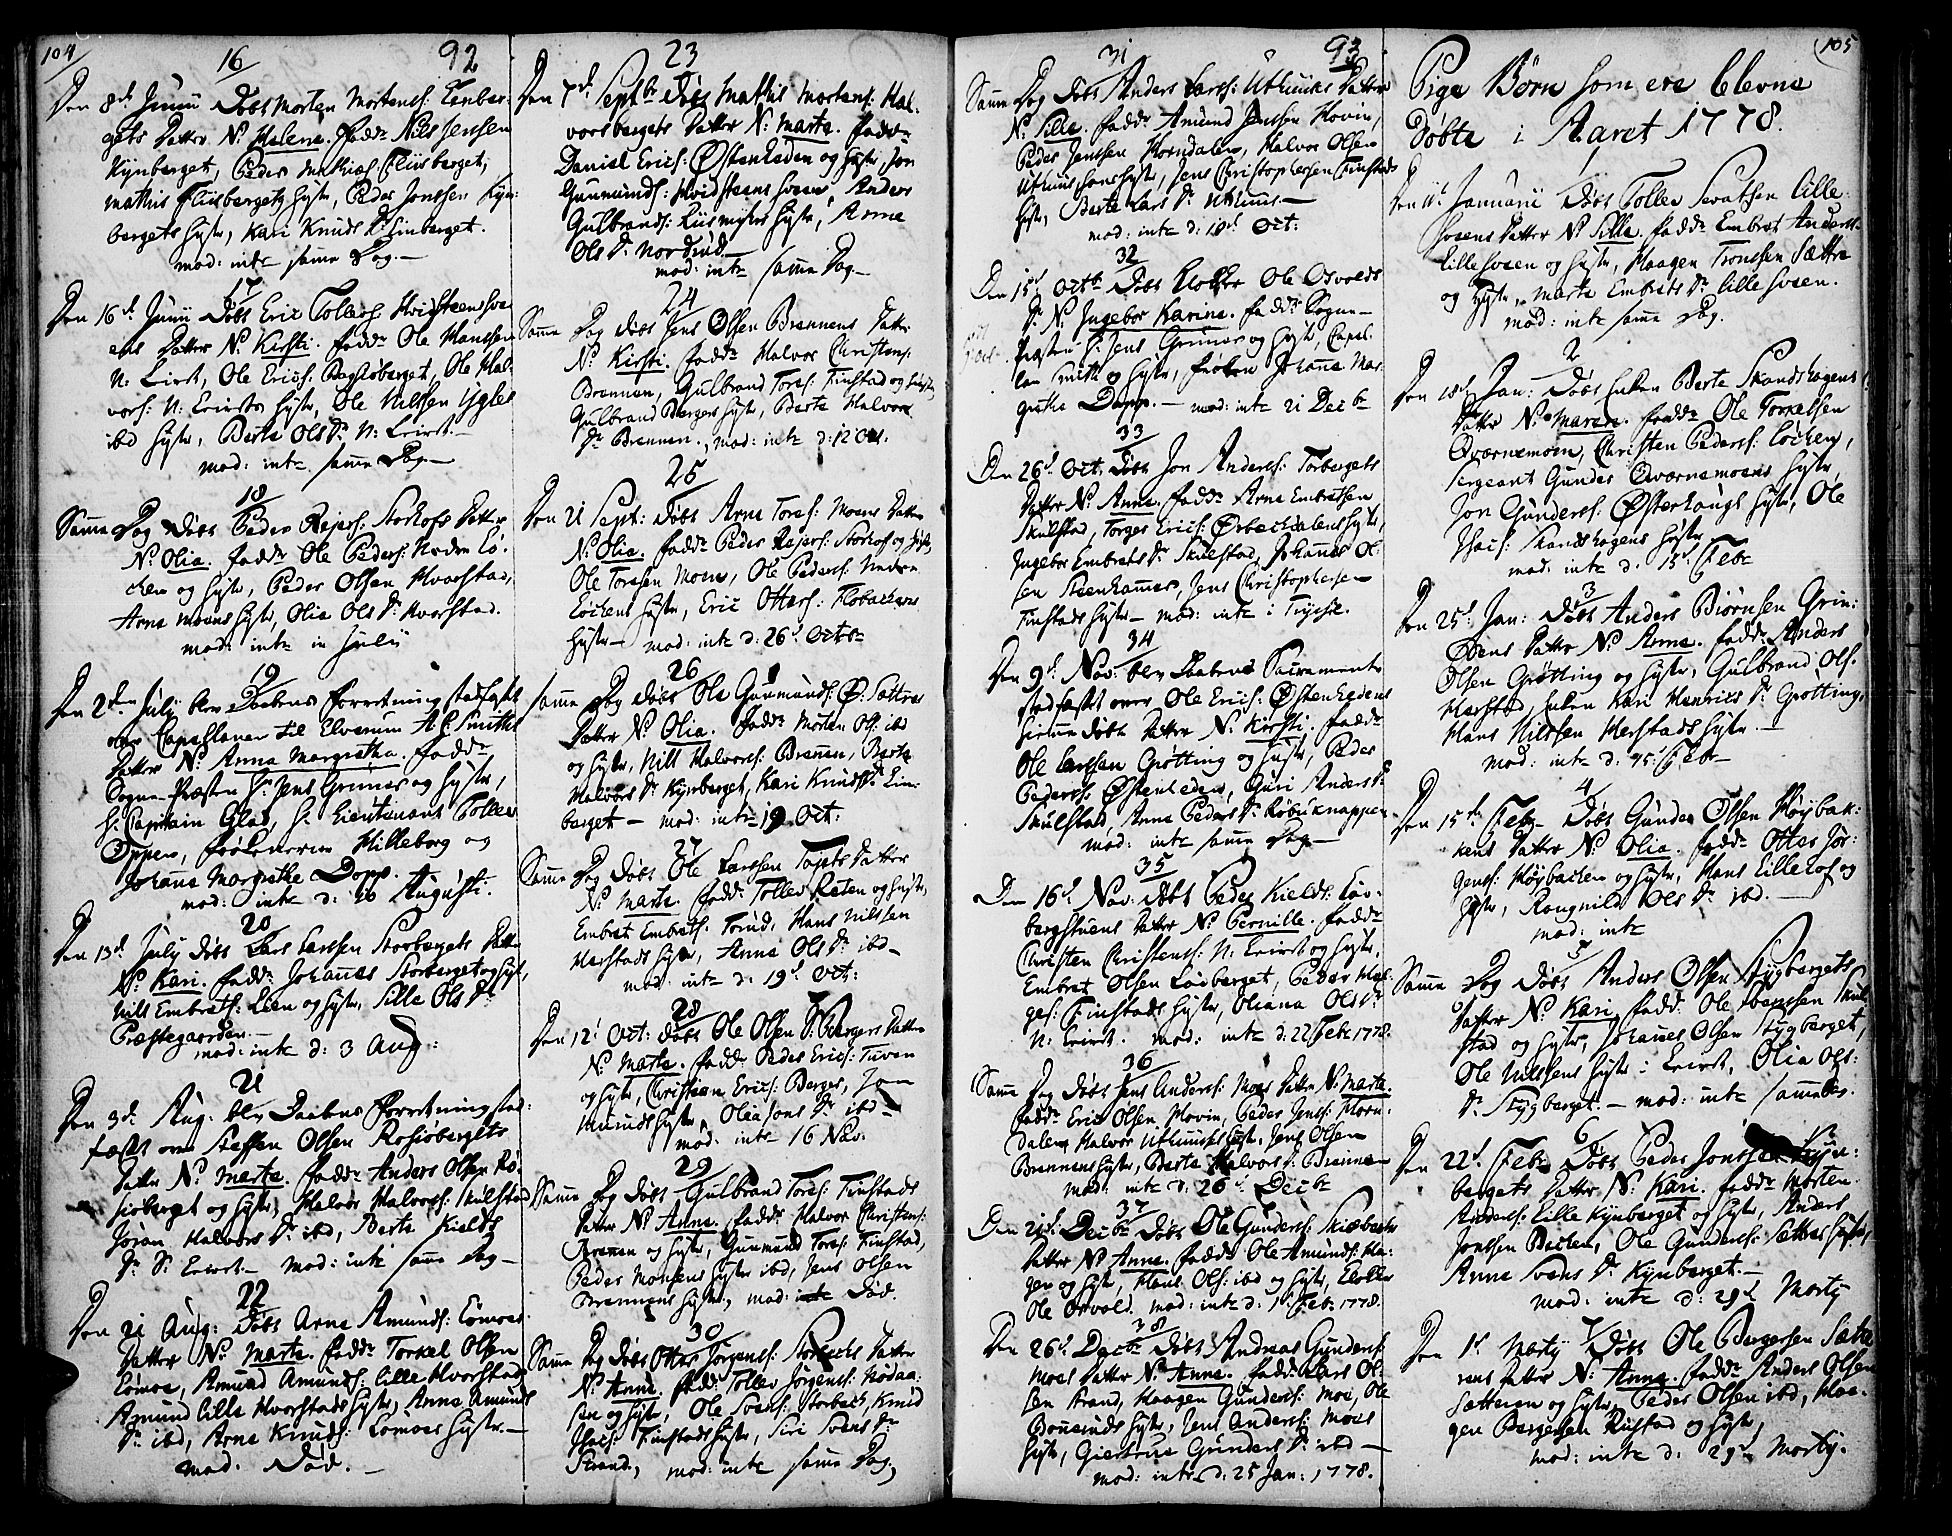 104
16
92
Den 8d Junii Döbt Morten Mortens: Lenber:
gets Datter N: Helena. Fadd: Nils Jensen
Kynberget, Peder Mathias Fliisberget,
Mathis Fliisbergets Hustr, Peder Jonsen Kyn:
bergets Hustr, Kari Knuds Dr Linberget.
mod: int: samme Dag.
17
Den 16d Junii Döbt Eric Tollefs: Hvidsteensvee
ens Datter N: Kirsti. Fadd: Ole Hansen
N: Leiret, Ole Erics: Rogsiöberget, Ole Hal-
vors: N: Leirets Hustr, Ole Nilssen Ygles
ibd Hustr, Berte Ols Dr N: Leiret.
mod: int: samme Dag
18
Samme Dag Döbt Peder Rejers: Storhofs Datter
N: Olia. Fadd: Ole Peders: Nedre Lö-
chen og Hustr, Peder Olsen Hvorstad,
Arne Moens Hustr, Olia Ols Dr Hvorstad.
mod: int: in Julii
19
Den 2den July blev Daabens Forretning stadfæstet
over Capellanen til Elverum H: Smiths
Datter N: Anna Margretha. Fadd:
Sogne-Præsten Hr Jens Grüner og Hustr,
H: Capitain Glad, H: Lieutenant Tollev
Oppen, Frökenerne Hilleborg og
Johanna Margrethe Dopp.
mod: int: d: 16 Augusti.
20
Den 13d July Döbt Lars Larssen Storbergets Datter
N: Kari. Fadd: Johannes Storberget og Hust,
Nils Embrets: Leen og Hustr, Sille Ols Dr
Præstegaarden.
mod: int: d: 3 Aug:
21
Den 3d Aug: blev Daabens Forretning stad:
fæstet over Steffen Olsen Rosiöbergets
Datter N: Marte. Fadd: Anders Olsen Ro-
siöberget og Hustr, Halvor Halvors: Skulstad
Jöran Halvors Dr ibd, Berte Kields
Dr S: Leiret. mod: int: samme Dag
22
Den 21 Aug: Döbt Arne Amunds: Lömoes
Datter N: Marte. Fadd: Torkel Olsen
Lömoe, Amund Amunds: Lille Hvorstad
Amund Lille Hvorstads Hustr, Anne Amunds
Dr ibd, Arne Knuds: Lömoes Hustr.
mod. Död.
23
Den 7d Septbr Döbt Mathis Mortens: Hal-
vorsbergets Datter N: Marte. Fadd:
Daniel Erics: Östenheden og Hustr, Jon
Gunmunds: Hvidsteens sveen, Anders
Gulbrands: Liismyhrs Hustr, Anne
Ols Dr Nordrud.
mod: int: samme Dag
24
Samme Dag Döbt Jens Olsen Brennens Datter
N: Kirsti. Fadd: Halvor Christens:
Brennen, Gulbrand Tores: Finstad og Hustr,
Gulbrand Berges Hustr, Berte Halvors
Dr Brennen, mod: int: d: 12 Oct.
25
Den 21 Sept: Döbt Arne Tores: Moens Datter
N: Olia. Fadd: Peder Rejers: Storhof og Hust,
Ole Toresen Moen, Ole Peders: Nedre
Löchens Hustr, Eric Otters: Flobachens
Hustr mod: int: d: 26d Octbr
26
Samme Dag Döbt Ole Gunmunds: Ö: Sættres
Datter N: Olia. Fadd: Morten Ols: ibd
og Hustr, Nils Halvors: Brennen, Berte
Halvors Dr Kynberget, Kari Knuds Dr Lin-
berget mod: int: 19 Oct:
27
Samme Dag Döbt Ole Larssen Topets Datter
N: Marte. Fadd: Tollev Raten og Hustr,
Embret Embrets: Torud, Hans Nilssen
Herstads Hustr, Anne Ols Dr ibd
mod: int: d: 19d Oct:
28
Den 12d Oct: Döbt Ole Olsen S: Berges Datter
N: Marte. Fadd: Peder Erics: Tuven
og Hustr, Christian Erics: Berger, Jon
Munds Hustr, Olea Jons Dr ibd
mod: int: 16 Nov.
29
Samme Dag Döbt Gulbrand Tores: Finstads
Datter N: Anne. Fadd: Halvor Christens:
Brennen og Hustr, Gunmund Tores: Finstad,
Peder Monsens Hustr ibd, Jens Olsen
Brennens Hustr, mod: Död.
30
Samme Dag Döbt Otter Jörgens: Storbechs Datter
N: Anne. Fadd: Tollev Jörgens: Nödaa-
sen og Hustr, Ole Svens: Storbech, Knud
Thois: Finstads Hustr, Siri Svens Dr
Strand, mod: int: samme Dag.
31
93
Samme Dag Döbt Anders Lars: Uthuuses Datter
N: Sille. Fadd: Amund Jenssen Hovin,
Peder Jenssen Horndalen, Halvor Olsen
Uthuus hans Hustr, Jens Christophersen Finstads
Hustr, Berte Lars Dr Uthuus
mod: int: d: 18d Oct:
32
Den 15d Octbr Döbt Klokker Ole Osvolds
Dr N: Ingebor Karine. Fadd: Sogne-
Præsten Hr: Jens Grüner og Hustr, Capel-
lan Smith og Hustr, Fröken Johanna Mar-
grethe Dopp. mod: int: 21 Decbr
33
Den 26d Oct: Döbt Jon Anders: Torbergets
Datter N: Anne. Fadd: Arne Embretsen
Skulstad, Torger Erics: Örbechdalens Hustr,
Ingebor Embrets Dr Skulstad, Johannes Ol-
sen Steenhammer, Jens Christophersen
Finstads Hustr mod: int: i Trysil.
34
Den 9d Nov: blev Daabens Sacramente
stadfæstet over Ole Erics: Östenhedens
hiemme döbte Datter N: Kirsti. Fadd:
Ole Larssen Grötting og Hustr, Peder
Peders: Östenheden, Guri Anders Dr
Skulstad, Anne Peders Dr Röbuknappen
mod: int: samme Dag
35
Den 16d Nov: Döbt Peder Kields: Löv-
bergstuens Datter N: Pernille. Fadd:
Christen Christens: N: Leiret og Hustr,
Embret Olsen Lövberget, Peder Hel-
ges: Finstads Hustr, Oliana Ols Dr
N: Leiret. mod: int: d: 22 Feb: 1778.
36
Samme Dag Döbt Jens Anders: Moes Datter N: Marte.
Fadd: Eric Olsen Hovin, Peder Jens: Horn-
dalen, Halvor Uthuuses Hustr, Jens Olsen
Brennens Hustr, Berte Halvors Dr Brennen
mod: int: d: 26d Decbr
37
Den 21d Decbr Döbt Ole Gunders: Skiæbechs
Datter N: Anne. Fadd: Ole Amunds: Ha-
gen og Hustr, Hans Ols: ibd og Hustr, Klokker
Ole Osvold. mod: int: d: 1d Feb: 1778.
38
Den 26d Decbr Döbt Andreas Gunders:
Moes Datter N: Anne. Fadd: Lars Ol-
sen Strand, Haagen Gunders: Moe, Ole
Boneruds Hustr, Jens Anders: Moes
Hustr, Giertrue Gunders Dr ibd
mod: int: d: 25 Jan: 1778.
105
Pige Börn som ere blevne
Döbte i Aaret 1778.
1
Den 11d Januarii Döbt Tollev Sevaldsen Lille
Sveens Datter N: Sille. Fadd: Embret Anders:
Lille Sveen og Hustr, Haagen Tronsen Sættre
og Hustr, Marte Embrets Dr Lille Sveen.
mod: int: samme Dag.
2
Den 18d Jan: Döbt Enken Berte Skandshagens
Datter N: Maren. Fadd: Ole Torkelsen
Qværnemoen, Christen Peders: Löchen,
Sergeant Gunder Qværnemoens Hustr,
Jon Gunders: Österhaugs Hustr, Ole
Thois: Skandshagens Hustr
mod: int: d. 15d Feb:
3
Den 25d Jan: Döbt Anders Biörnsen Grin:
Ödens Datter N: Anne. Fadd: Anders
Olsen Grötting og Hustr, Gulbrand Ols:
Herstad, Enken Kari Henrics Dr Grötting,
Hans Nilssen Herstads Hustr.
mod: int: d: 15d Feb:
4
Den 15de Feb: Döbt Gunder Olsen Höybak:
kens Datter N: Olia. Fadd: Otter Jör:
gens: Höybachen og Hustr, Hans Lille Lof og
Hustr, Rongnild Ols Dr ibd.
mod: int:
5
Samme Dag Döbt Anders Olsen Stygbergets
Datter N: Kari. Fadd: Ole Skul-
stad og Hustr, Johannes Olsen Stygberget,
Ole Nilsens Hustr i Leiret, Olia Ols:
Dr Stygberget. mod: int: samme D.
6
Den 22d Feb: Döbt Peder Jonsen Kyn:
bergets Datter N: Kari. Fadd: Morten
Anders: Lille Kynberget og Hustr, Anders
Jonsen Bechen, Ole Gunders: Sættres Hustr,
Anne Svens Dr Kynberget.
mod: int: d: 29d Marty
7
Den 1d Marty Döbt Ole Bergersen Sætte
rens Datter N: Anne. Fadd: Anders Olsen
Sætteren og Hustr, Peder Olsen ibd, Haa-
gen Bergersen Rustad og Hustr,
mod: int: d: 29d Marty.